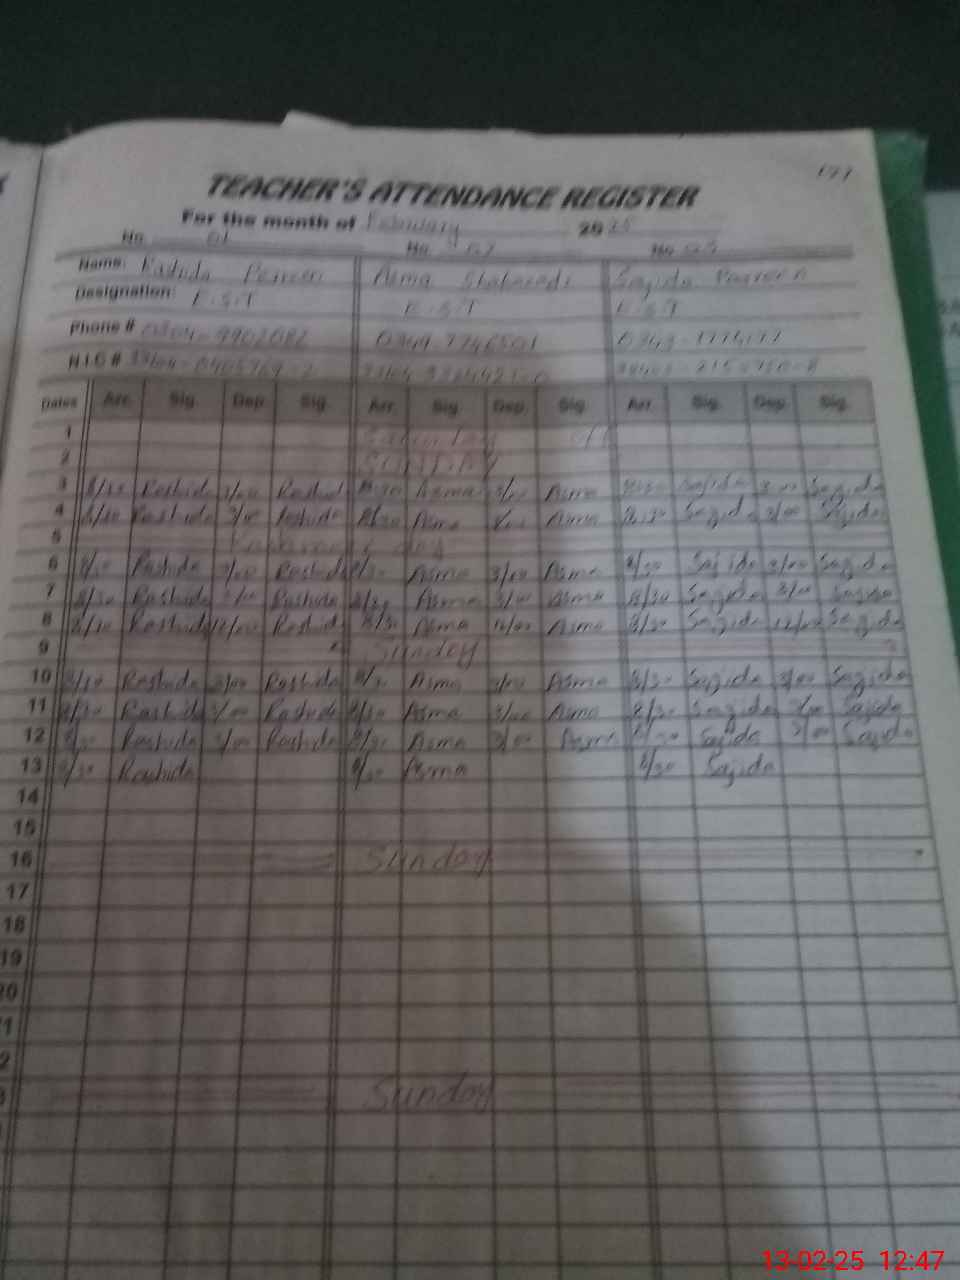 TEACHER'S ATTENDANCE REGISTER
For the month of February 2025
No. 01 No. 02 No. 03
Name: Rashida Parveen Asma Sajida Parveen
Designation: E.S.T E.S.T E.S.T
Phone #
N.I.C #
Dates Arr. Sig. Dep. Sig. Arr. Sig. Dep. Sig. Arr. Sig. Dep. Sig.
1 Saturday off
2 SUNDAY
3 8/30 Rashida 3/00 Rashida 8/30 Asma 3/00 Asma 8/30 Sajida 3/00 Sajida
4 8/30 Rashida 3/00 Rashida 8/30 Asma Asma 8/30 Sajida 3/00 Sajida
5 Kashmir day
6 8/30 Rashida 3/00 Rashida 8/30 Asma 3/00 Asma 8/30 Sajida 3/00 Sajida
7 8/30 Rashida 3/00 Rashida 8/30 Asma 3/00 Asma 8/30 Sajida 3/00 Sajida
8 8/30 Rashida 12/00 Rashida 8/30 Asma 12/00 Asma 8/30 Sajida 12/00 Sajida
9 Sunday
10 8/30 Rashida 3/00 Rashida 8/30 Asma 3/00 Asma 8/30 Sajida 3/00 Sajida
11 8/30 Rashida 3/00 Rashida 8/30 Asma 3/00 Asma 8/30 Sajida 3/00 Sajida
12 8/30 Rashida 3/00 Rashida 8/30 Asma 3/00 Asma 8/30 Sajida 3/00 Sajida
13 8/30 Rashida 8/30 Asma 8/30 Sajida
14
15
16 Sunday
17
18
19
20
Sunday
13-02-25 12:47